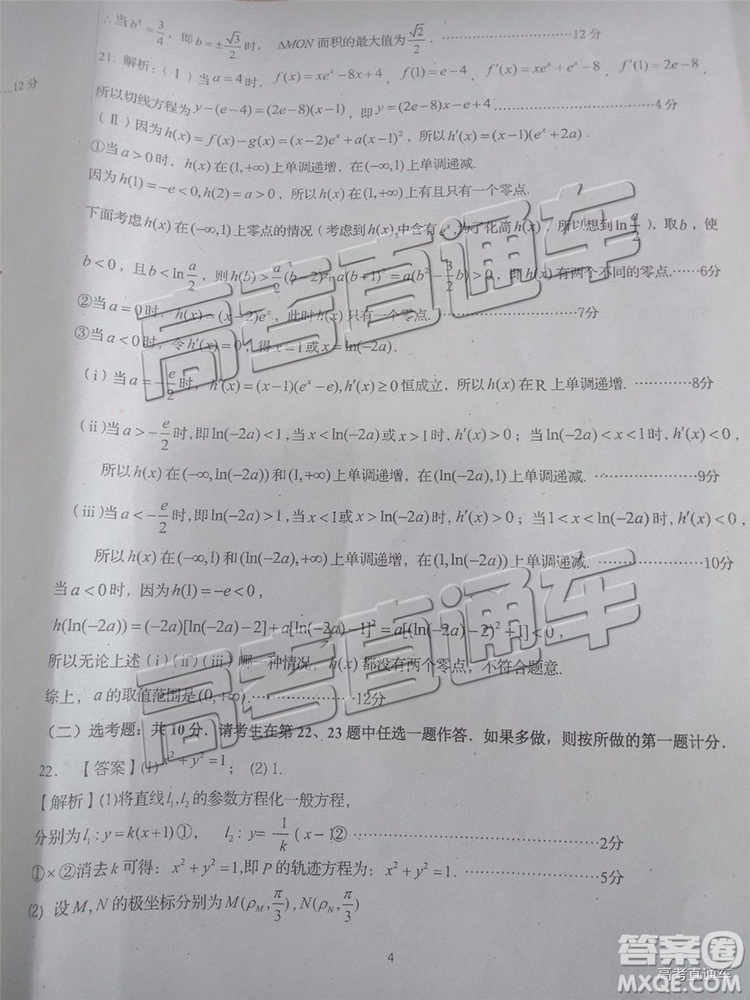 ∴当b²=3/4，即b=±√3/2时，ΔMON面积的最大值为√2/2．……………………12分
…12分
21. 解析：（Ⅰ）当a=4时，f(x)=xeˣ-8x+4，f(1)=e-4，f′(x)=xeˣ+eˣ-8，f′(1)=2e-8，
所以切线方程为y-(e-4)=(2e-8)(x-1)，即y=(2e-8)x-e+4．……………………4分
（Ⅱ）因为h(x)=f(x)-g(x)=(x-2)eˣ+a(x-1)²，所以h′(x)=(x-1)(eˣ+2a)．
①当a>0时，h(x)在(1,+∞)上单调递增，在(-∞,1)上单调递减．
因为h(1)=-e<0,h(2)=a>0，所以h(x)在(1,+∞)上有且只有一个零点．
下面考虑h(x)在(-∞,1)上零点的情况（考虑到h(x)中含有eˣ,为了化简h(x)，所以想到ln a/2），取b，使
b<0，且b<ln a/2，则h(b)>a/2(b-2)+a(b-1)²=a(b²-3/2b)>0，即h(x)有两个不同的零点．……6分
②当a=0时，h(x)=(x-2)eˣ，此时h(x)只有一个零点．……………………7分
③当a<0时，令h′(x)=0，得x=1或x=ln(-2a)．
（i）当a=-e/2时，h′(x)=(x-1)(eˣ-e),h′(x)≥0恒成立，所以h(x)在R上单调递增．…………8分
（ii）当a>-e/2时,即ln(-2a)<1,当x<ln(-2a)或x>1时,h′(x)>0；当ln(-2a)<x<1时,h′(x)<0，
所以h(x)在(-∞,ln(-2a))和(1,+∞)上单调递增，在(ln(-2a),1)上单调递减．……………9分
（iii）当a<-e/2时,即ln(-2a)>1,当x<1或x>ln(-2a)时,h′(x)>0；当1<x<ln(-2a)时,h′(x)<0，
所以h(x)在(-∞,1)和(ln(-2a),+∞)上单调递增，在(1,ln(-2a))上单调递减．……………10分
当a<0时，因为h(1)=-e<0，
h(ln(-2a))=(-2a)[ln(-2a)-2]+a[ln(-2a)-1]²=a[(ln(-2a)-2)²+1]<0，
所以无论上述（i）（ii）（iii）哪一种情况，h(x)都没有两个零点，不符合题意．
综上，a的取值范围是(0,+∞)．……………12分
（二）选考题：共10分．请考生在第22、23题中任选一题作答．如果多做，则按所做的第一题计分．
22. 【答案】(1)x²+y²=1；(2)1.
【解析】(1)将直线l₁,l₂的参数方程化一般方程，
分别为l₁:y=k(x+1)①，l₂:y=1/k(x-1②……………………2分
①×②消去k可得：x²+y²=1,即P的轨迹方程为：x²+y²=1．……………………5分
(2) 设M,N的极坐标分别为M(ρM,π/3),N(ρN,π/3)
4
高考直通车
高考直通车
答案圈
高考直通车
MXQE.COM